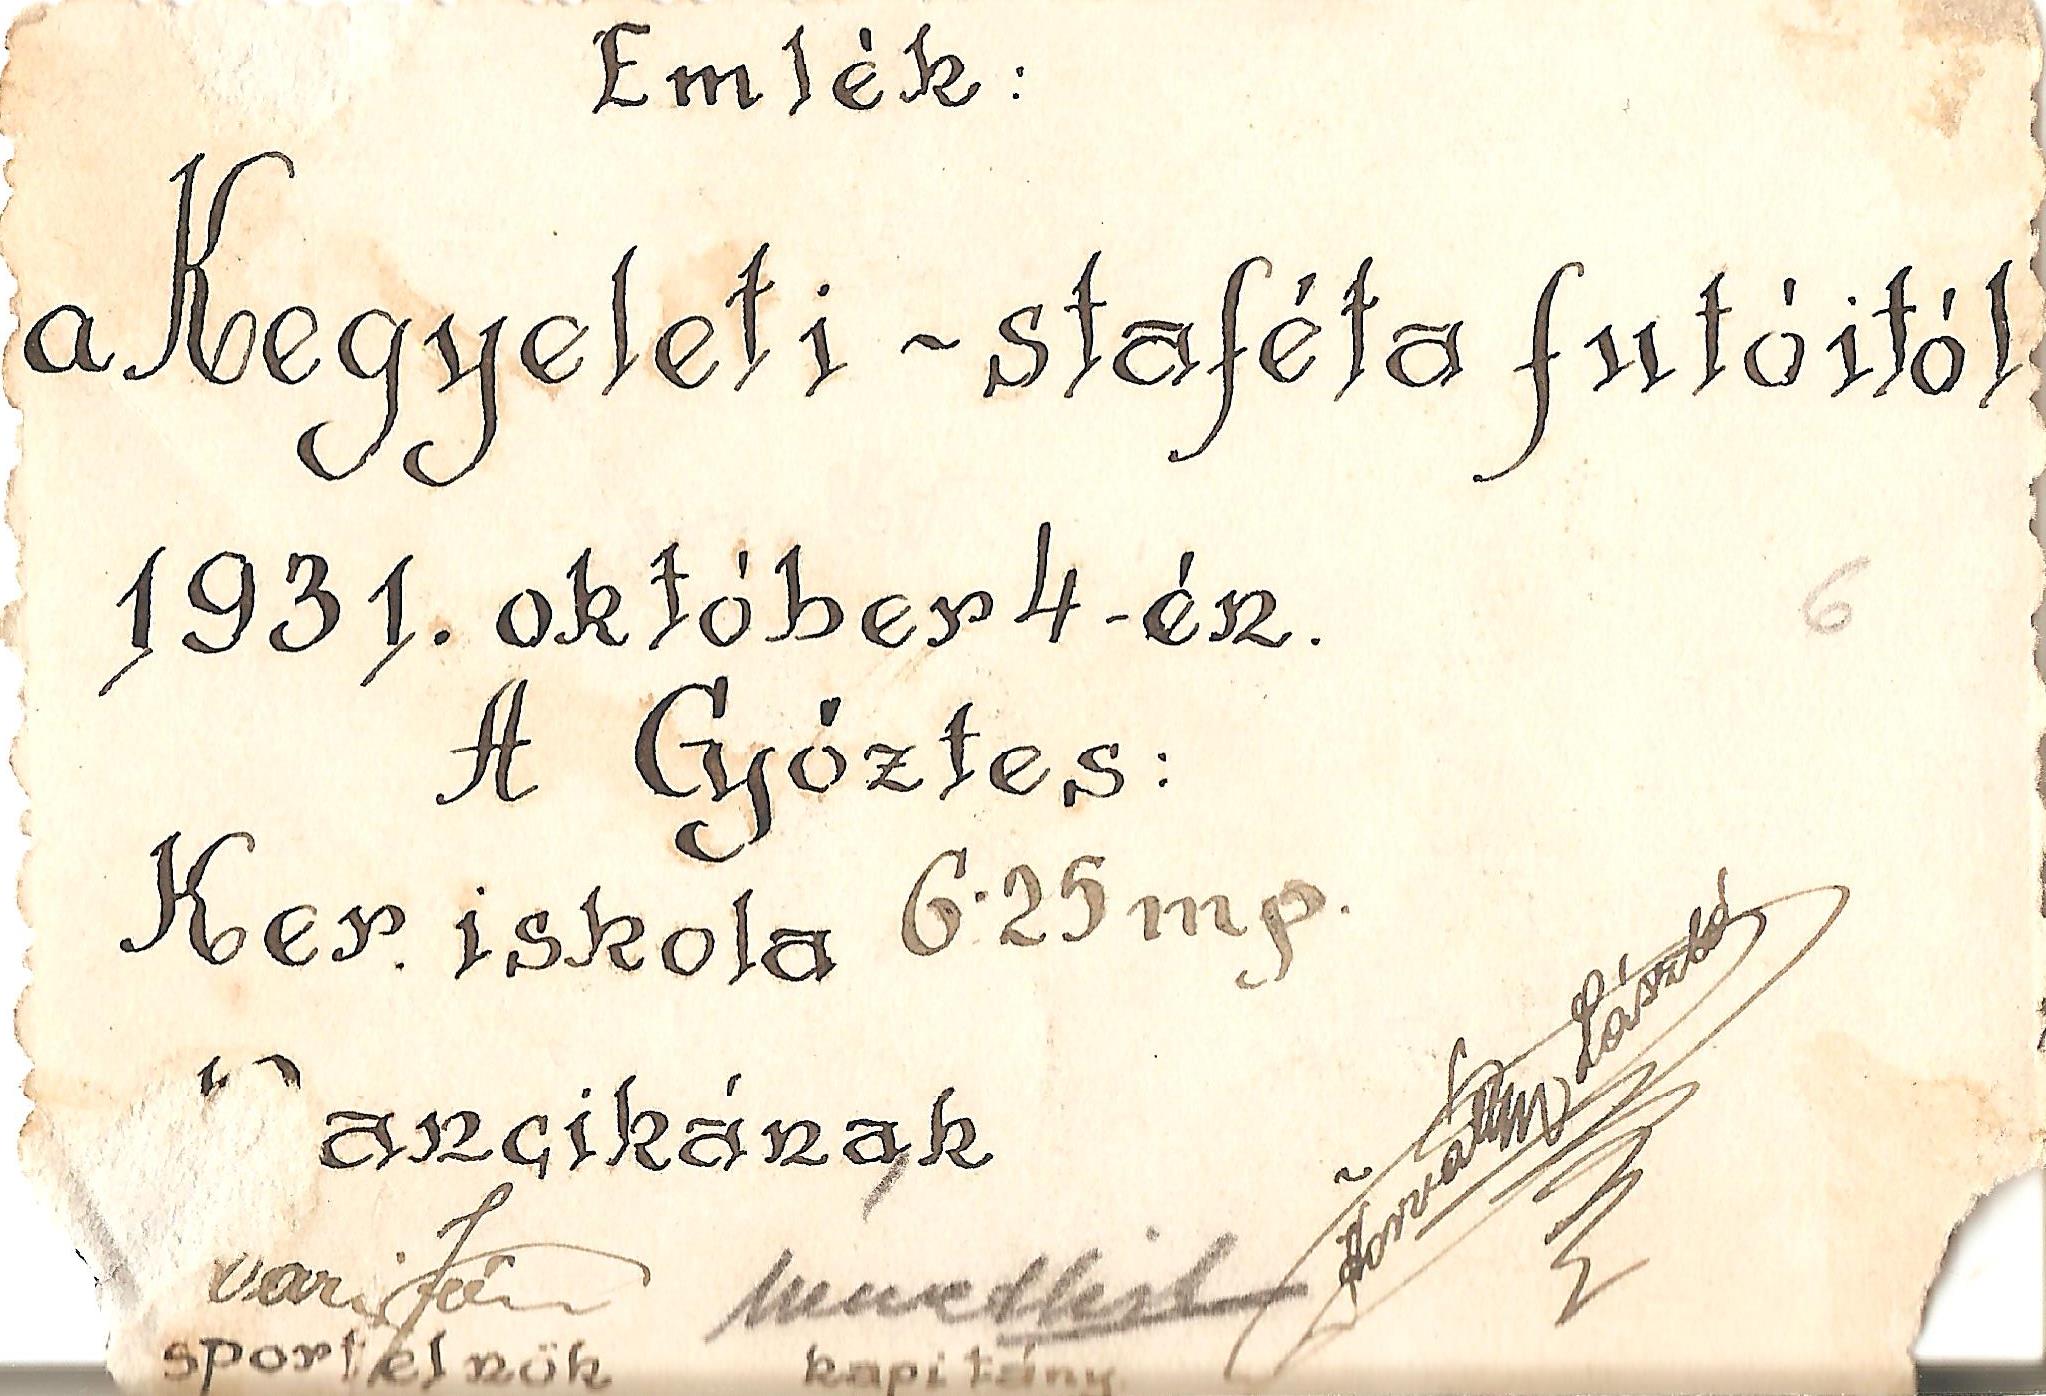 Emlék:
a Kegyeleti-staféta futóitól
1931. október 4-én.
6
A Győztes:
Ker. iskola 6·25 mp.
Horváth László
sportelnök
kapitány